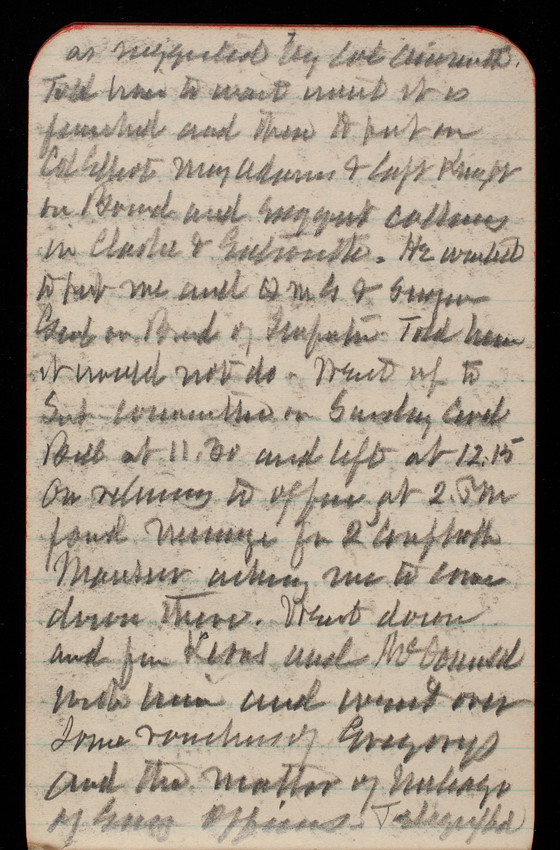 as suggested by Col Ainsworth.
Told him to wait until it is
finished and then to put on
Col Elliot Maj Adams & Capt Knight
on Board and suggest
in Clache &. He wanted
to put me and Q M G & Surgeon
Genl on Board of. Told him
it would not do. Went up to
Sub Committee on Sundry Civil
Bill at 11.30 and left at 12.15
On returning to office at 2. P M
found message fr
asking me to come
down there. Went down
and fou and McConnell
with him and went over
Some vouchers of Gregorys
and the matter of mileage
of Engr Officers. Telegrafed